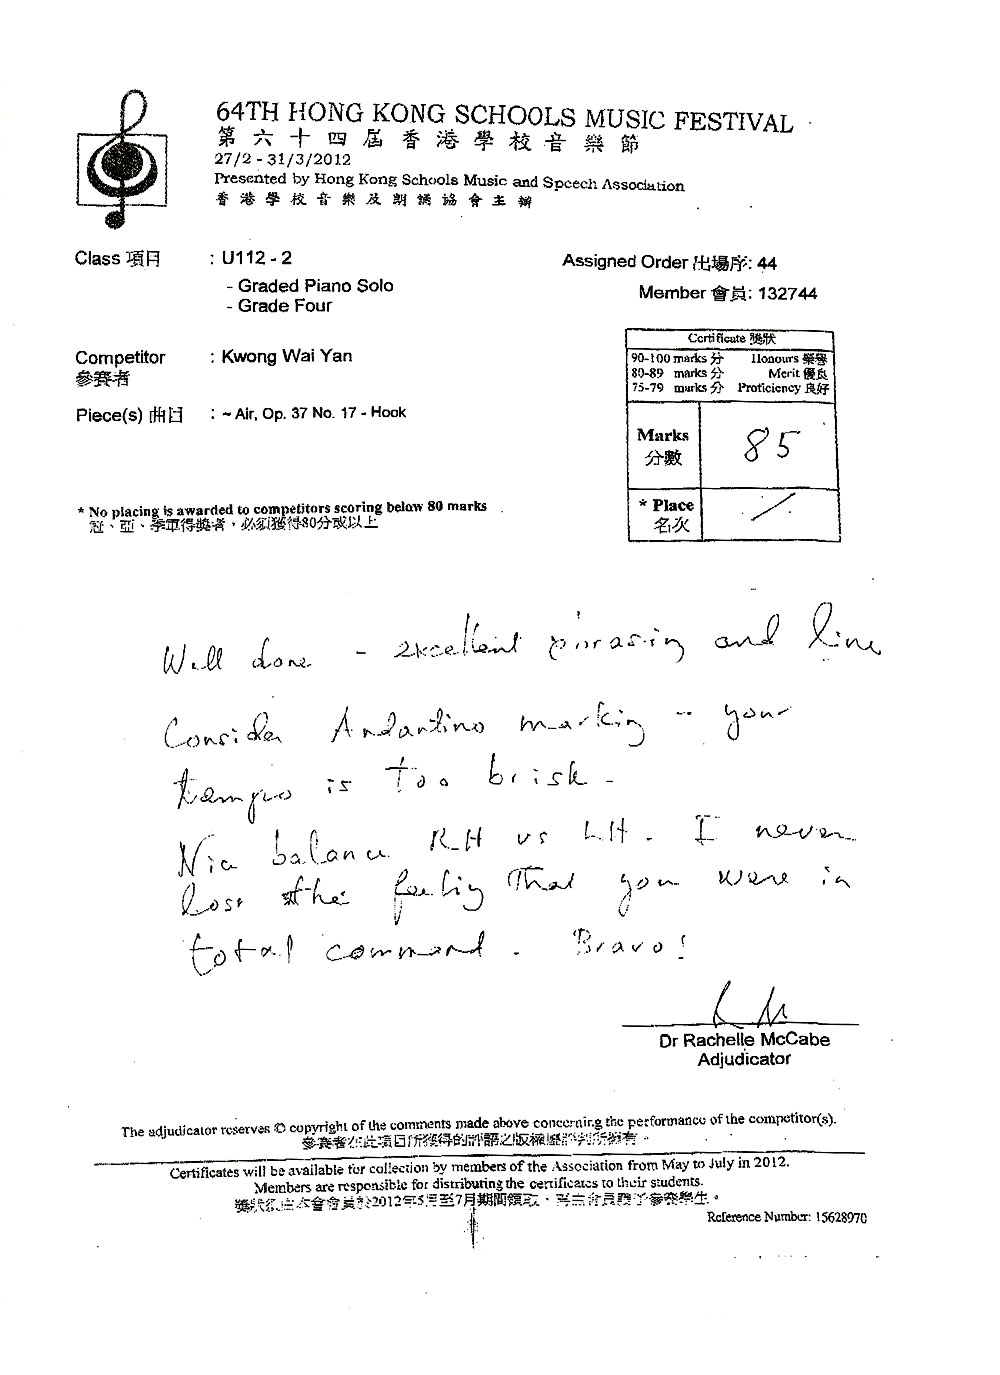 64TH HONG KONG SCHOOLS MUSIC FESTIVAL
第六十四屆香港學校音樂節
27/2 - 31/3/2012
Presented by Hong Kong Schools Music and Speech Association
香港學校音樂及朗誦協會主辦
Class 項目 : U112 - 2
- Graded Piano Solo
- Grade Four
Assigned Order 出場序: 44
Member 會員: 132744
Competitor : Kwong Wai Yan
參賽者
Piece(s) 曲目 : ~ Air, Op. 37 No. 17 - Hook
Certificate 獎狀
90-100 marks 分 Honours 榮譽
80-89 marks 分 Merit 優良
75-79 marks 分 Proficiency 良好
Marks 85
分數
* Place /
名次
* No placing is awarded to competitors scoring below 80 marks
冠、亞、季軍得獎者，必須獲得80分或以上
Well done - excellent phrasing and line
Consider Andantino marking - your
tempo is too brisk -
Nice balance RH vs LH. I never
lost the feeling that you were in
total command. Bravo!
Dr Rachelle McCabe
Adjudicator
The adjudicator reserves © copyright of the comments made above concerning the performance of the competitor(s).
參賽者在此項目所獲得的評語之版權歸評判所擁有。
Certificates will be available for collection by members of the Association from May to July in 2012.
Members are responsible for distributing the certificates to their students.
2012年5月至7月期間領取
Reference Number: 15628970